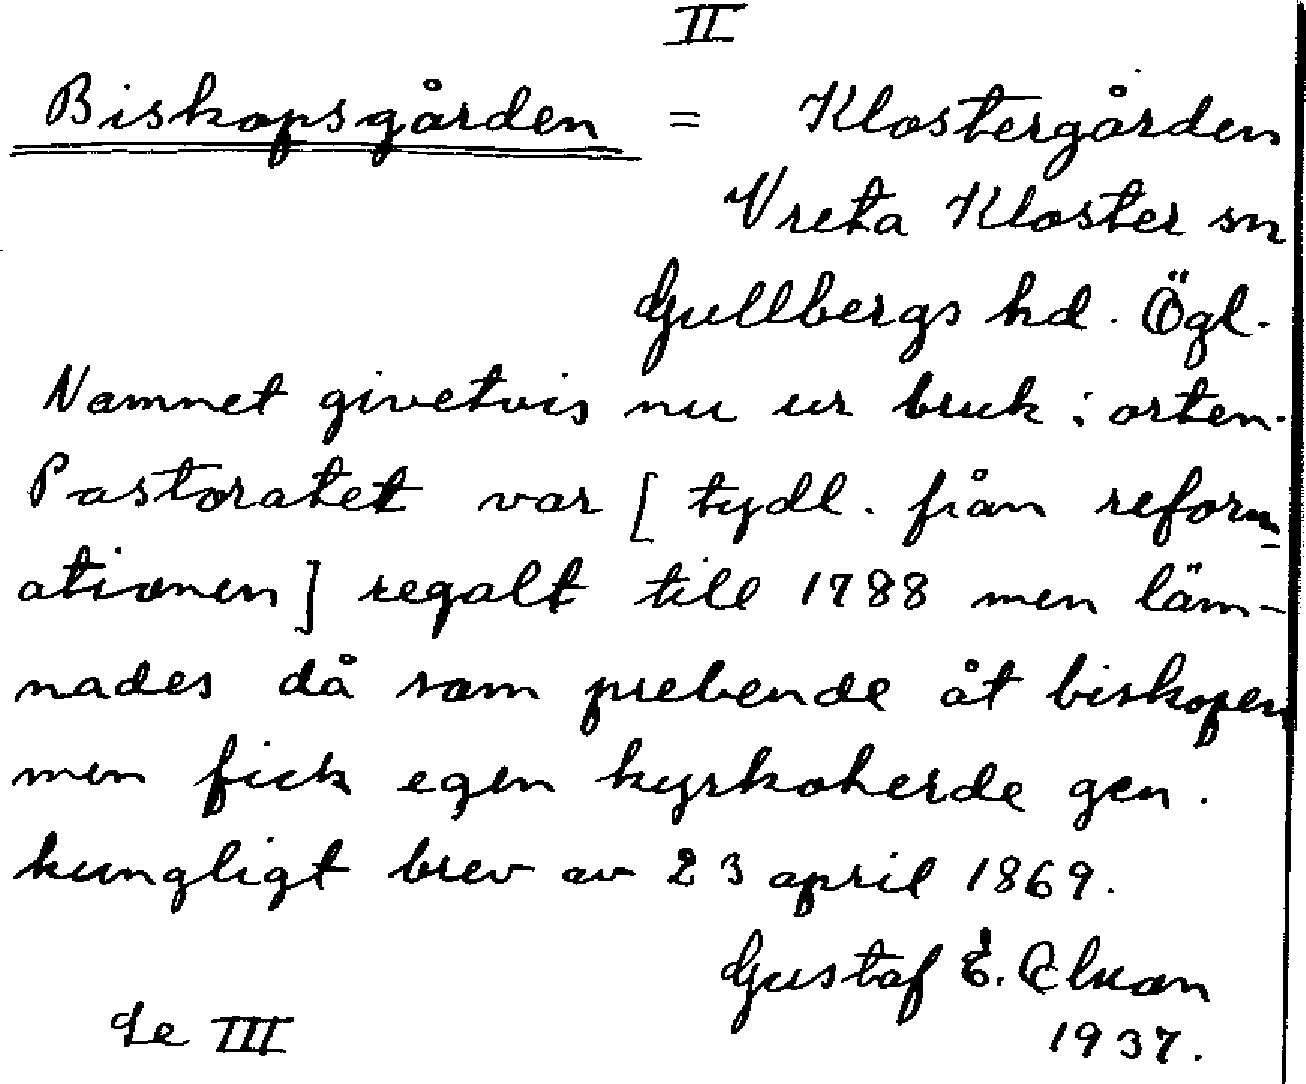 II
Biskopsgården = Klostergården
Vreta Kloster sn
Gullbergs hd. Ögl.
Namnet givetvis nu ur bruk i orten.
Pastoratet var [tydl. från reform
ationen] regalt till 1788 men läm-
nades då som prebende åt biskopen
men fick egen kyrkoherde gen.
kungligt brev av 23 april 1869.
Gustaf E.
Se III
1937.